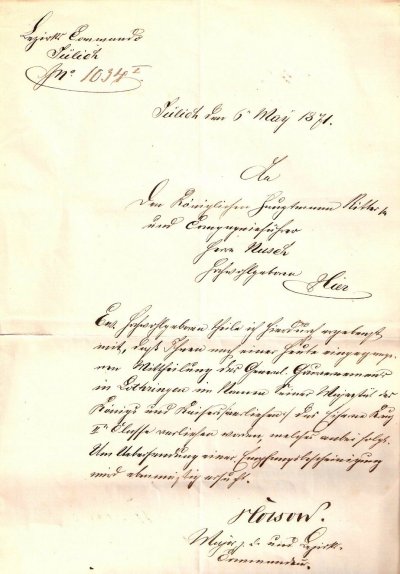 Bezirks Commando
Jülich
No. 1034 I
Jülich den 6 May 1871.
An
Den Königlichen Hauptmann Ritter
und Compagnieführer
Herrn Nusch
Hochwohlgeboren
Hier
Ew. Hochwohlgeboren theile ich hierdurch ergebenst
mit, daß Ihnen nach einer heute eingegange-
nen Mittheilung des General Gouvernements
in Lothringen im Namen Seiner Majestät des
Königs und Kaisers das Eiserne Kreuz
II Classe verliehen worden, welches anbei folgt.
Um Uebersendung einer Empfangsbescheinigung
wird ersucht.
Major z. D. und Bezirks-
Commandeur.